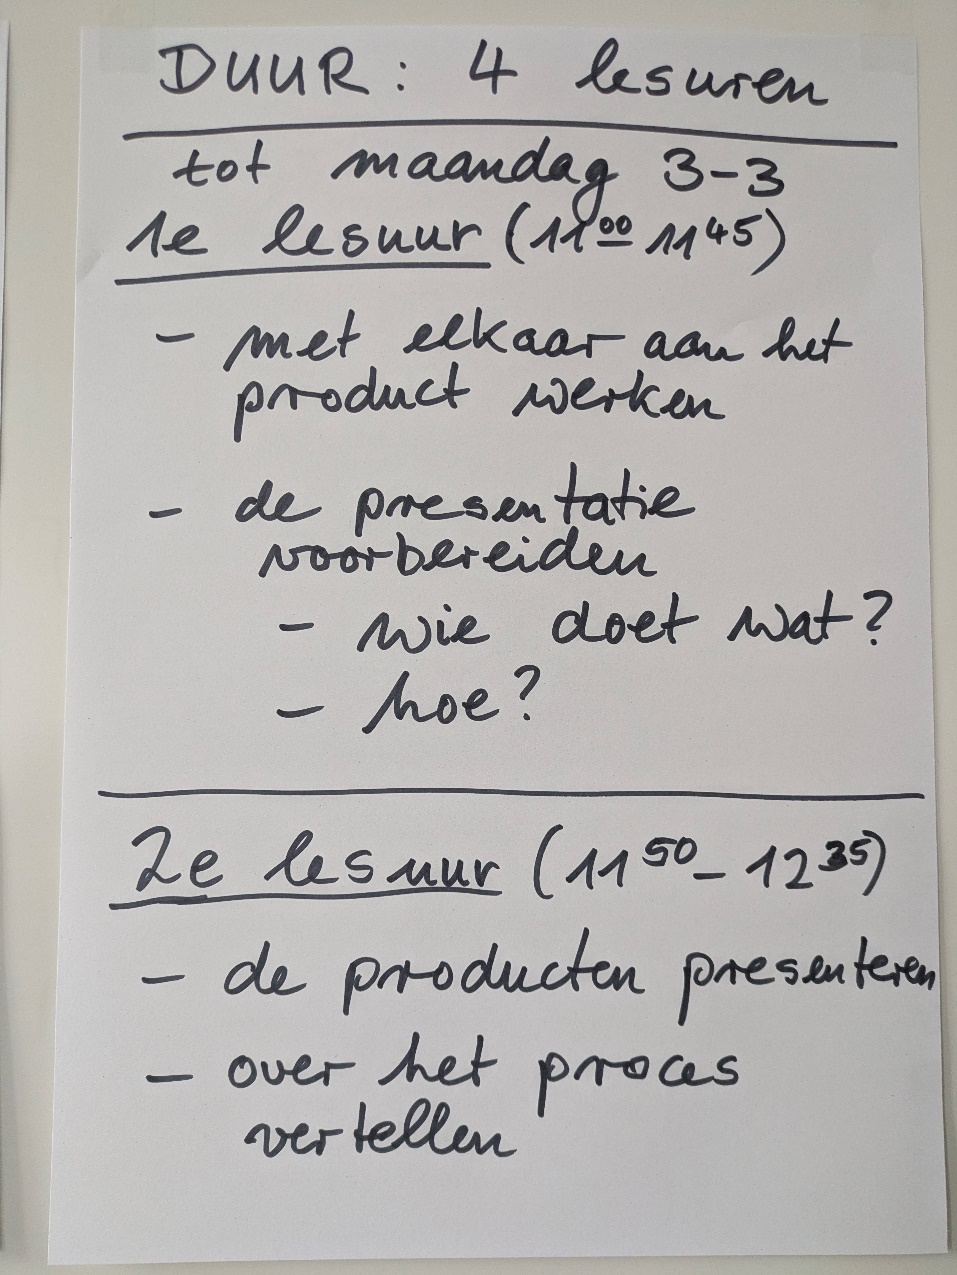 DUUR: 4 lesuren
tot maandag 3-3
1e lesuur (11⁰⁰ 11⁴⁵)
- met elkaar aan het
product werken
- de presentatie
voorbereiden
- wie doet wat?
- hoe?
2e lesuur (11⁵⁰ - 12³⁵)
- de producten presenteren
- over het proces
vertellen